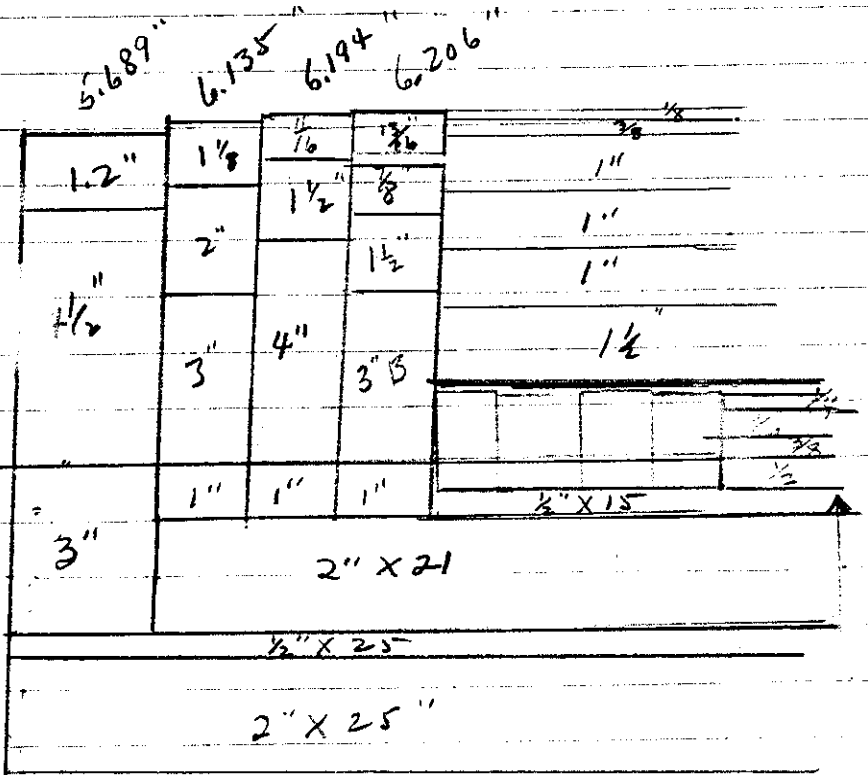 5.689" 6.135" 6.194" 6.206"
1/8
3/8
1.2" 1 1/8 11/16 13/16 1"
2" 1 1/2" 7/8" 1"
1 1/2" 1"
1 1/2" 3" 4" 3" B 1 1/2"
3/8
1/2
1" 1" 1" 1/2" X 15
3" 2" X 21
1/2" X 25
2" X 25"